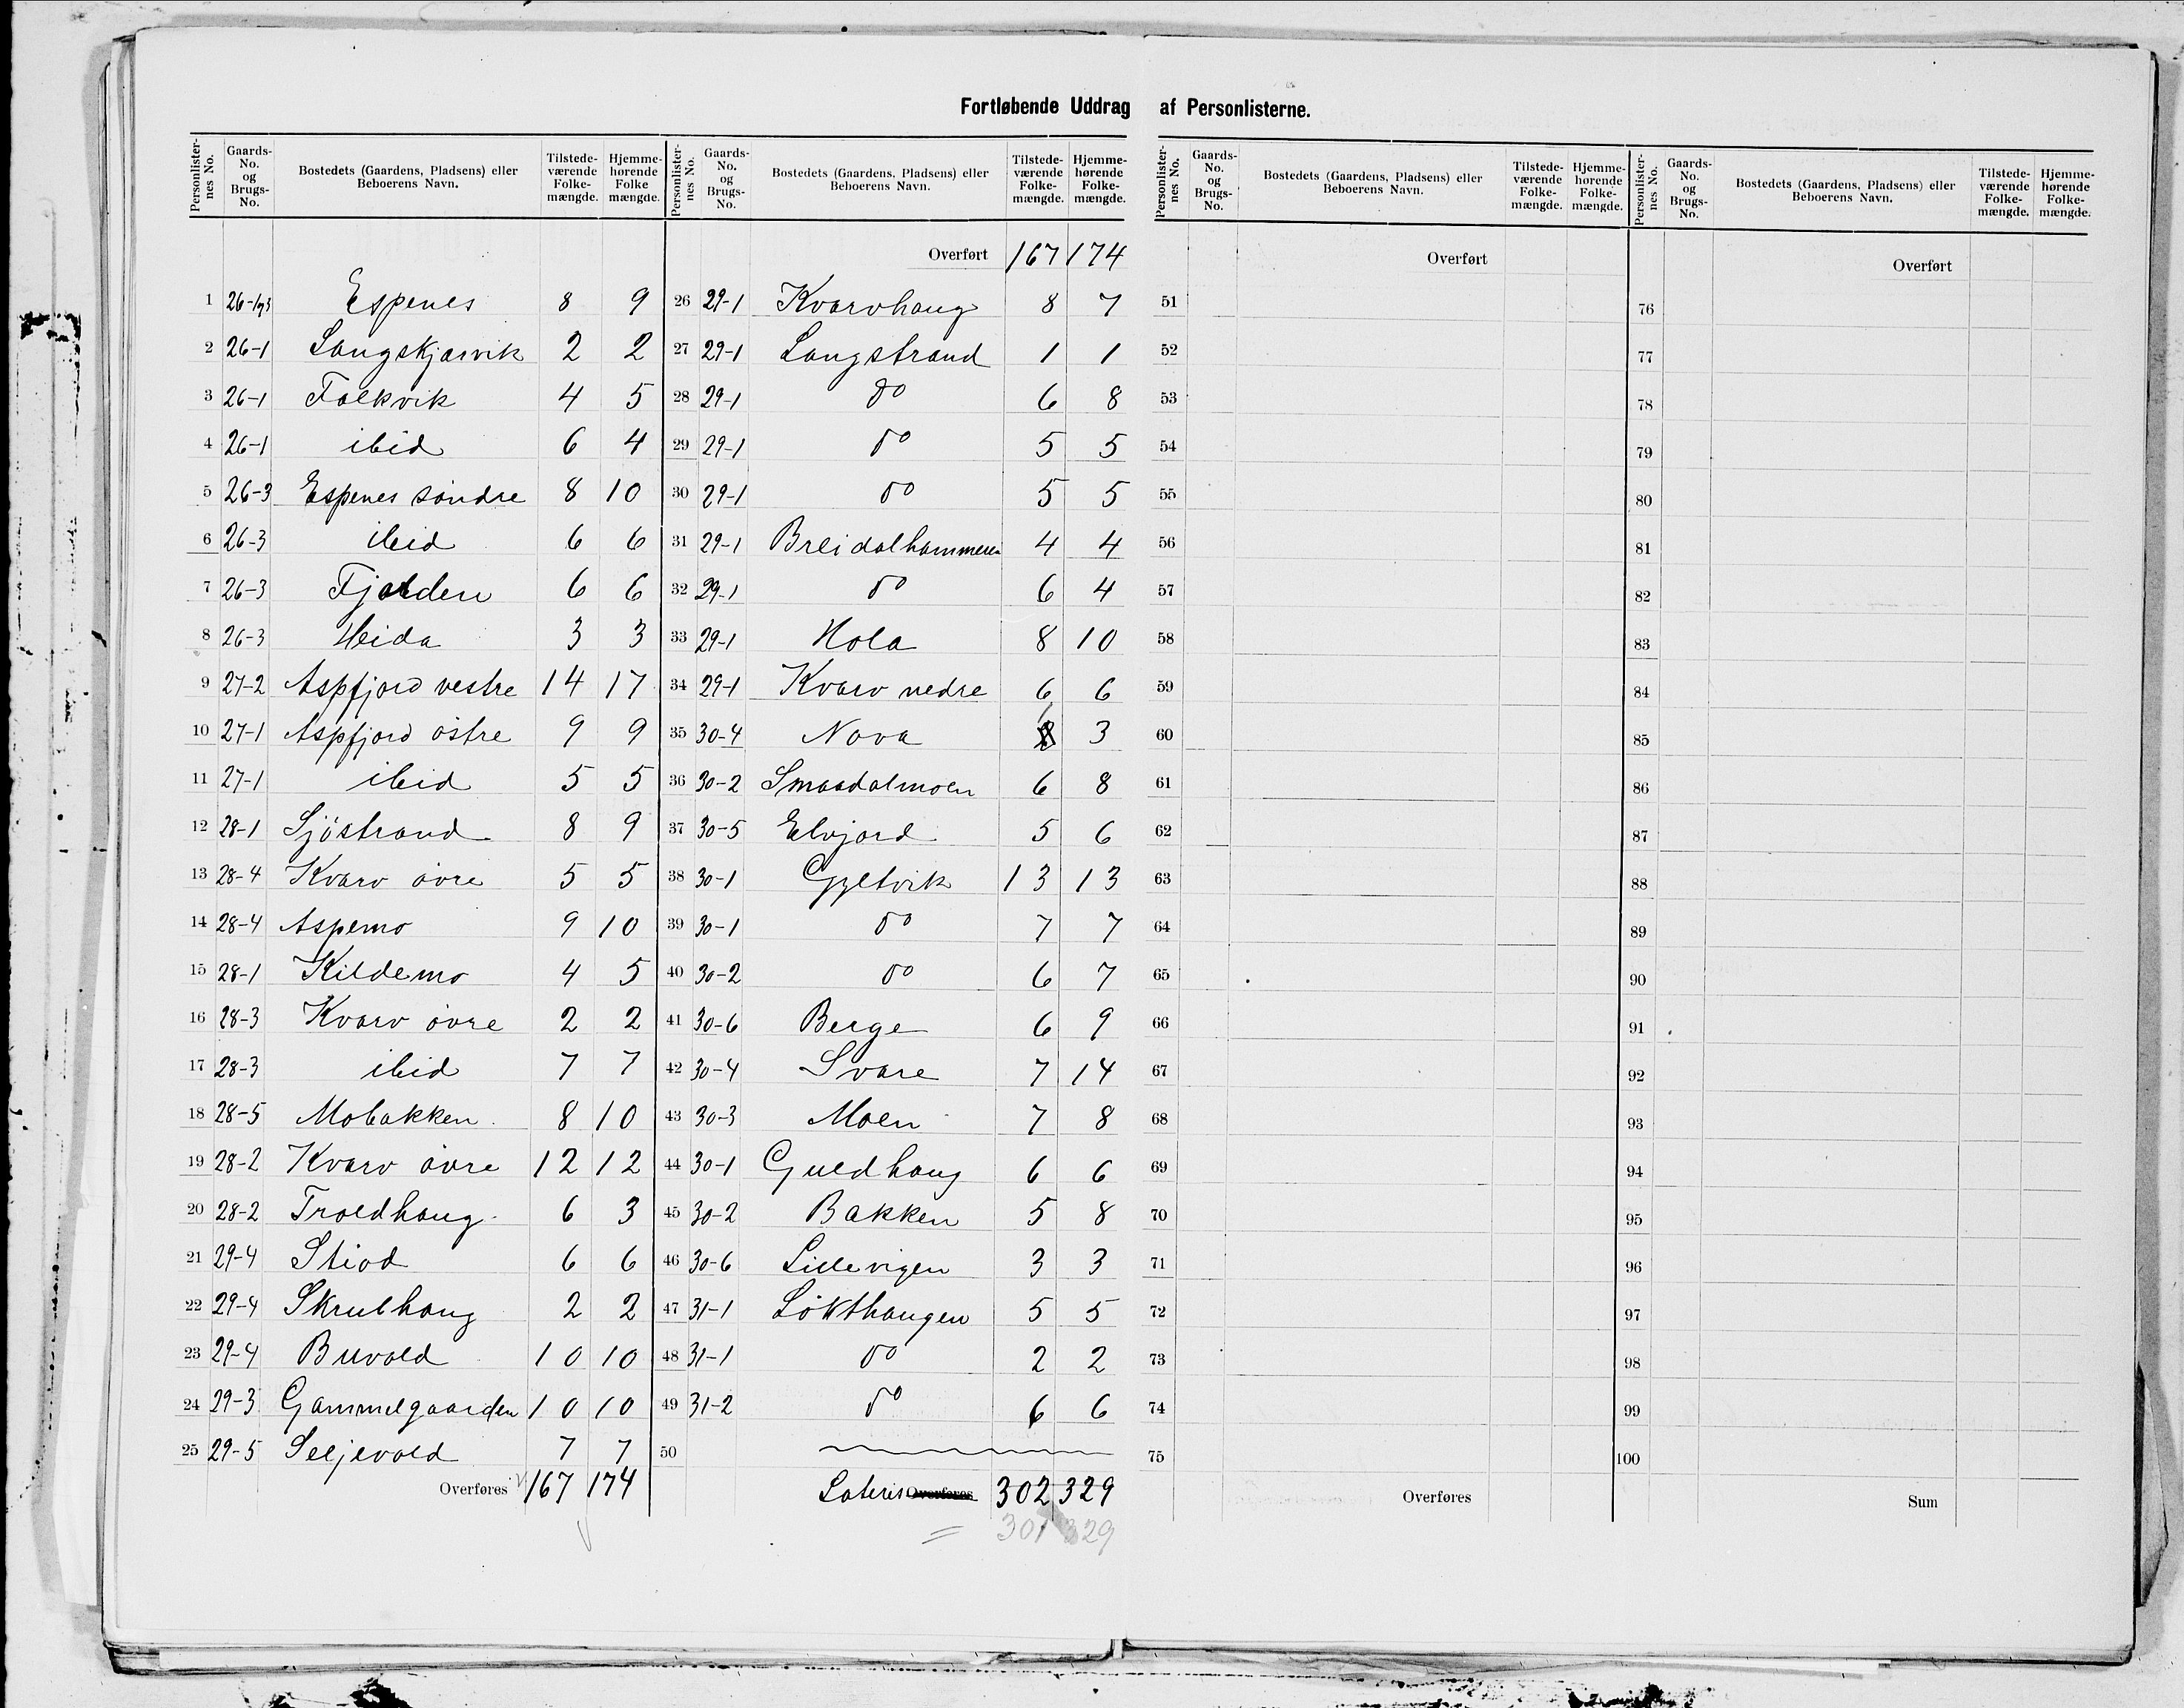 Fortløbende Uddrag af Personlisterne.
Personlisternes No. | Gaards-No. og Brugs-No. | Bostedets (Gaardens, Pladsens) eller Beboerens Navn. | Tilstedeværende Folkemængde. | Hjemmehørende Folkemængde.
1 26-1,3 Espenes 8 9
2 26-1 Langskjærvik 2 2
3 26-1 Falkvik 4 5
4 26-1 ibid 6 4
5 26-3 Espenes søndre 8 10
6 26-3 ibid 6 6
7 26-3 Fjelden 6 6
8 26-3 Heida 3 3
9 27-2 Aspfjord vestre 14 17
10 27-1 Aspfjord østre 9 9
11 27-1 ibid 5 5
12 28-1 Sjöstrand 8 9
13 28-4 Kvarv øvre 5 5
14 28-4 Aspemo 9 10
15 28-1 Kildemo 4 5
16 28-3 Kvarv øvre 2 2
17 28-3 ibid 7 7
18 28-5 Mobakken 8 10
19 28-2 Kvarv øvre 12 12
20 28-2 Troldhaug 6 3
21 29-4 Stiod 6 6
22 29-4 Skrubhaug 2 2
23 29-4 Buvold 10 10
24 29-3 Gammelgaarden 10 10
25 29-5 Seljevold 7 7
Overføres 167 174
Personlisternes No. | Gaards-No. og Brugs-No. | Bostedets (Gaardens, Pladsens) eller Beboerens Navn. | Tilstedeværende Folkemængde. | Hjemmehørende Folkemængde.
Overført 167 174
26 29-1 Kvarvhaug 8 7
27 29-1 Langstrand 1 1
28 29-1 do 6 8
29 29-1 do 5 5
30 29-1 do 5 5
31 29-1 Breidalhammeren 4 4
32 29-1 do 6 4
33 29-1 Hola 8 10
34 29-1 Kvarv nedre 6 6
35 30-4 Nova 3
36 30-2 Smaadalmoen 6 8
37 30-5 Elvjord 5 6
38 30-1 Gyltvik 13 13
39 30-1 do 7 7
40 30-2 do 6 7
41 30-6 Berge 6 9
42 30-4 Svare 7 14
43 30-3 Moen 7 8
44 30-1 Guldhaug 6 6
45 30-2 Bakken 5 8
46 30-6 Lillevigen 3 3
47 31-1 Løkthaugen 5 5
48 31-1 do 2 2
49 31-2 do 6 6
50
Lateris Overføres 302 329
= 301 329
Personlisternes No. | Gaards-No. og Brugs-No. | Bostedets (Gaardens, Pladsens) eller Beboerens Navn. | Tilstedeværende Folkemængde. | Hjemmehørende Folkemængde.
Overført
51
52
53
54
55
56
57
58
59
60
61
62
63
64
65
66
67
68
69
70
71
72
73
74
75
Overføres
Personlisternes No. | Gaards-No. og Brugs-No. | Bostedets (Gaardens, Pladsens) eller Beboerens Navn. | Tilstedeværende Folkemængde. | Hjemmehørende Folkemængde.
Overført
76
77
78
79
80
81
82
83
84
85
86
87
88
89
90
91
92
93
94
95
96
97
98
99
100
Sum